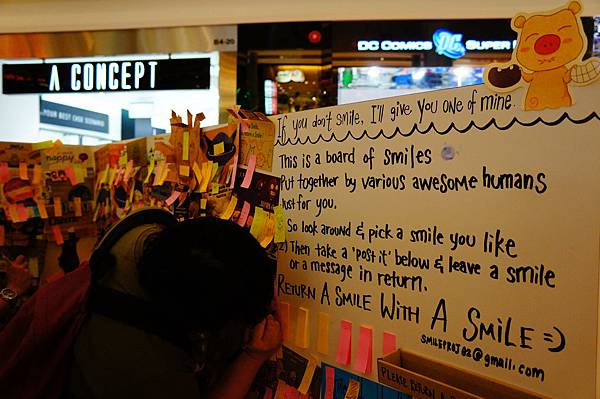 B4-25
A CONCEPT
YOUR BEST
DC COMICS DC SUPER
If you don't smile, I'll give you one of mine.
This is a board of smiles
Put together by various awesome humans
Just for you.
So look around & pick a smile you like
2) Then take a 'post it' below & leave a smile
or a message in return.
RETURN A SMILE WITH A SMILE =)
SMILEPROJ02@gmail.com
PLEASE RETURN